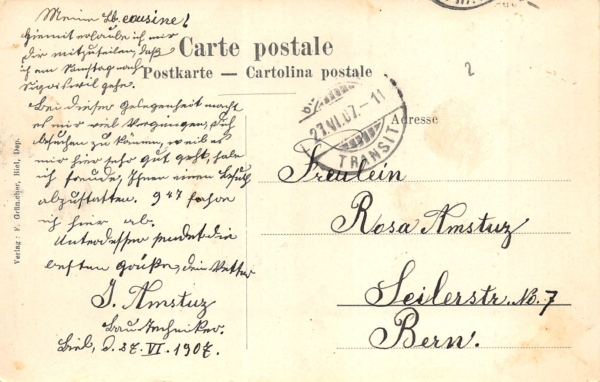 Carte postale
Postkarte — Cartolina postale
Adresse
27.VI.07.-11
TRANSIT
2
Meine Lb. cousine!
Hiemit erlaube ich mir
Dir mitzuteilen, daß
ich am Samstag nach
gehe.
Bei dieser Gelegenheit macht
es mir viel Vergnügen, Dich
besuchen zu können, weil es
mir hier sehr gut geht, habe
ich Freude, Ihnen einen Besuch
abzustatten. 9 47 fahre
ich hier ab.
Unterdessen sendet die
besten Grüße, dein Vetter
J. Amstuz
Bautechniker.
Biel, d. 27. VI. 1907.
Freulein
Rosa Amstuz
Seilerstr. No. 7
Bern.
Verlag: F. Biel, Dép.